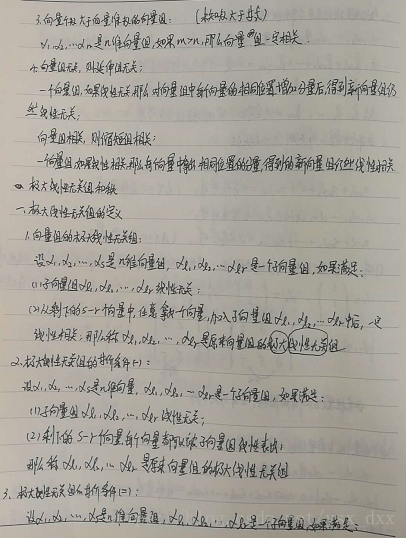 3.向量个数大于向量维数的向量组：（枚数大于
α₁,α₂,…αₘ是n维向量组，如果m>n，那么向量组一定相关.
4.向量组无关，则延伸组无关；
一个向量组，如果线性无关，那么对向量组中每个向量的相同位置增加分量后，得到新向量组仍
然线性无关；
向量组相关，则缩短组相关；
一个向量组如果线性相关，那么每个向量中相同位置的分量，得到的新向量组仍然线性相关
极大线性无关组和秩
一.极大线性无关组的定义
1.向量组的极大线性无关组：
设α₁,α₂,…,αₛ是n维向量组，αℓ₁,αℓ₂,…,αℓᵣ是一个子向量组，如果满足：
(1)子向量组αℓ₁,αℓ₂,…,αℓᵣ线性无关；
(2)从剩下的s-r个向量中，任意拿一个向量，加入子向量组αℓ₁,αℓ₂,…αℓᵣ中后，一定
线性相关；那么称αℓ₁,αℓ₂,…,αℓᵣ是原来向量组的极大线性无关组
2.极大线性无关组的等价条件(一)：
设α₁,α₂,…,αₛ是n维向量，αℓ₁,αℓ₂,…αℓᵣ是一个子向量组，如果满足：
(1)子向量组αℓ₁,αℓ₂,…,αℓᵣ线性无关；
(2)剩下的s-r个向量每个向量都可以被子向量组线性表出；
那么称αℓ₁,αℓ₂,…αℓᵣ是原来向量组的极大线性无关组
3.极大线性无关组的等价条件(二)：
设α₁,α₂,…,αₛ是n维向量组，αℓ₁,αℓ₂,…,αℓᵣ是一个子向量组，如果满足：